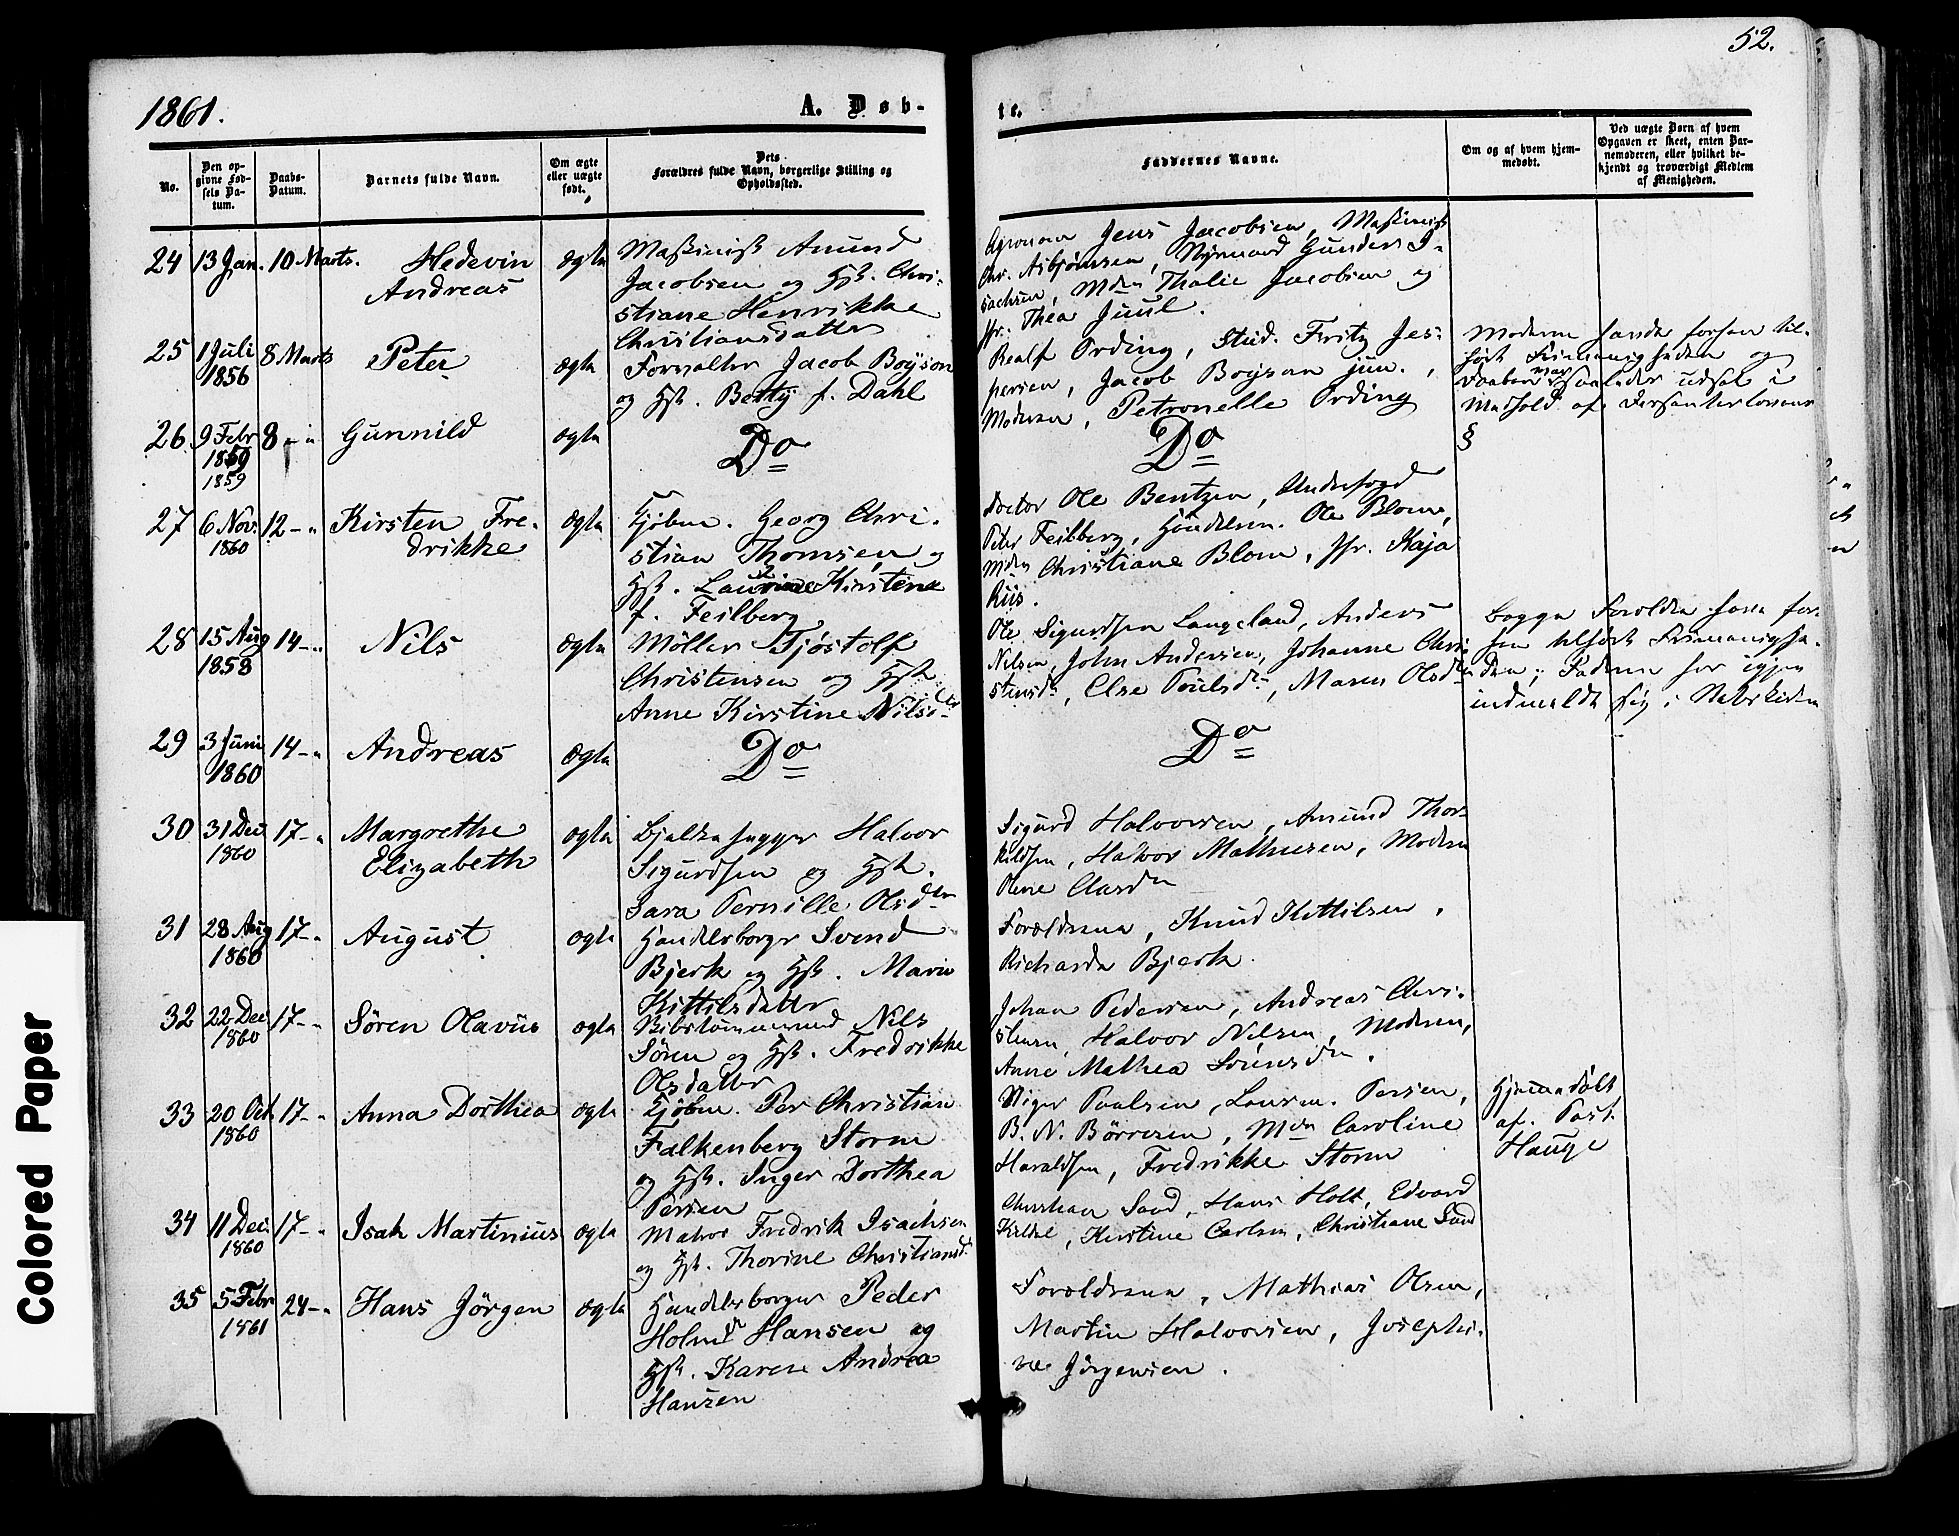 52.
1861.
A. Døb-
te.
No.
Den op-
givne Fød-
sels Da-
tum.
Daabs-
Datum.
Barnets fulde Navn.
Om ægte
eller uægte
født.
Dets
Forældres fulde Navn, borgerlige Stilling og
Opholdssted.
Faddernes Navne.
Om og af hvem hjem-
medøbt.
Ved uægte Børn af hvem
Opgaven er skeet, enten Bar-
nemoderen, eller hvilket be-
kjendt og troværdigt Medlem
af Menigheden.
24 13 Jan. 10 Marts. Hedevin
Andreas
ægte
Maskinist Amund
Jacobsen og Hst. Chri-
stiane Henrikke
Christiansdatter
Agronom Jens Jacobsen, Maskinist
Chr. Asbjørnsen, Styrmand Gunder I-
sachsen, Mdm Thalie Jacobsen og
Jfr. Thea Juul.
25 1 Juli
1856
8 Marts Peter ægte
Forvalter Jacob Boyson
og Hst. Betty f. Dahl
Realf Ording, Stud. Fritz Jes-
persen, Jacob Boyson jun.,
Moderen, Petronelle Ording
Moderen havde forhen til-
hørt Frimenigheden og
Daaben var saaledes udsat i
Medhold af Dissenterlovens
§
26 9 Febr
1859
1859
8 - " Gunnild ægte Do
Do
27 6 Nov.
1860
12 - " Kirsten Fre-
drikke
ægte
Kjøbm. Georg Chri-
stian Thomsen og
Hst. Laurine Kirstene
f. Feilberg
Doctor Ole Bentzen, Underfogd
Peter Feilberg, Handelsm. Ole Blom,
Mdm Christiane Blom, Jfr. Kaja
Riis.
28 15 Aug
1858
14 - " Nils ægte
Møller Tjøstolf
Christensen og Hst.
Anne Kirstine Nilsdtr
Ole Sigurdsen Langeland, Anders
Nilsen, John Andersen, Johanne Chri-
stensdr, Else Poulsdr, Maren Olsdtr
Begge Forældre have for-
hen tilhørt Frimenighe-
den; Faderen har igjen
indmeldt sig i Statskirken
29 3 Juni
1860
14 - " Andreas ægte Do
Do
30 31 Dec
1860
17 - " Margrethe
Elizabeth
ægte
Bjelkehugger Halvor
Sigurdsen og Hst.
Sara Pernille Olsdtr
Sigurd Halvorsen, Amund Thor-
kildsen, Halvor Mathiesen, Moderen
Olene Clasdtr
31 28 Aug
1860
17 - " August ægte
Handelsborger Svend
Bjerk og Hst. Marie
Kittilsdatter
Forældrene, Knud Kittilsen,
Richarda Bjerk.
32 22 Dec
1860
17 - " Søren Olavus ægte
Skibstømmermand Nils
Søren og Hst. Fredrikke
Olsdatter
Johan Pedersen, Andreas Chri-
stensen, Halvor Nilsen, Moderen,
Anne Mathea Sørensdtr.
33 20 Oct
1860
17 - " Anna Dorthea ægte
Kjøbm. Per Christian
Falkenberg Storm
og Hst. Inger Dorthea
Persen
Viger Poulsen, Lauren. Persen,
B. N. Børresen, Mdm Caroline
Haraldsen, Fredrikke Storm
Hjemmedøbt
af Past.
Hauge
34 11 Dec
1860
17 - " Isak Martinius ægte
Matros Fredrik Isachsen
og Hst. Thorine Christiansd
Christian Sand, Hans Holt, Edvard
Kildal, Kirstine Carlsen, Christiane Sand
35 5 Febr
1861
24 - " Hans Jørgen ægte
Handelsborger Peder
Holm Hansen og
Hst. Karen Andrea
Hansen
Forældrene, Mathias Olsen,
Martin Halvorsen, Josephi-
ne Jørgensen.
Colored Paper